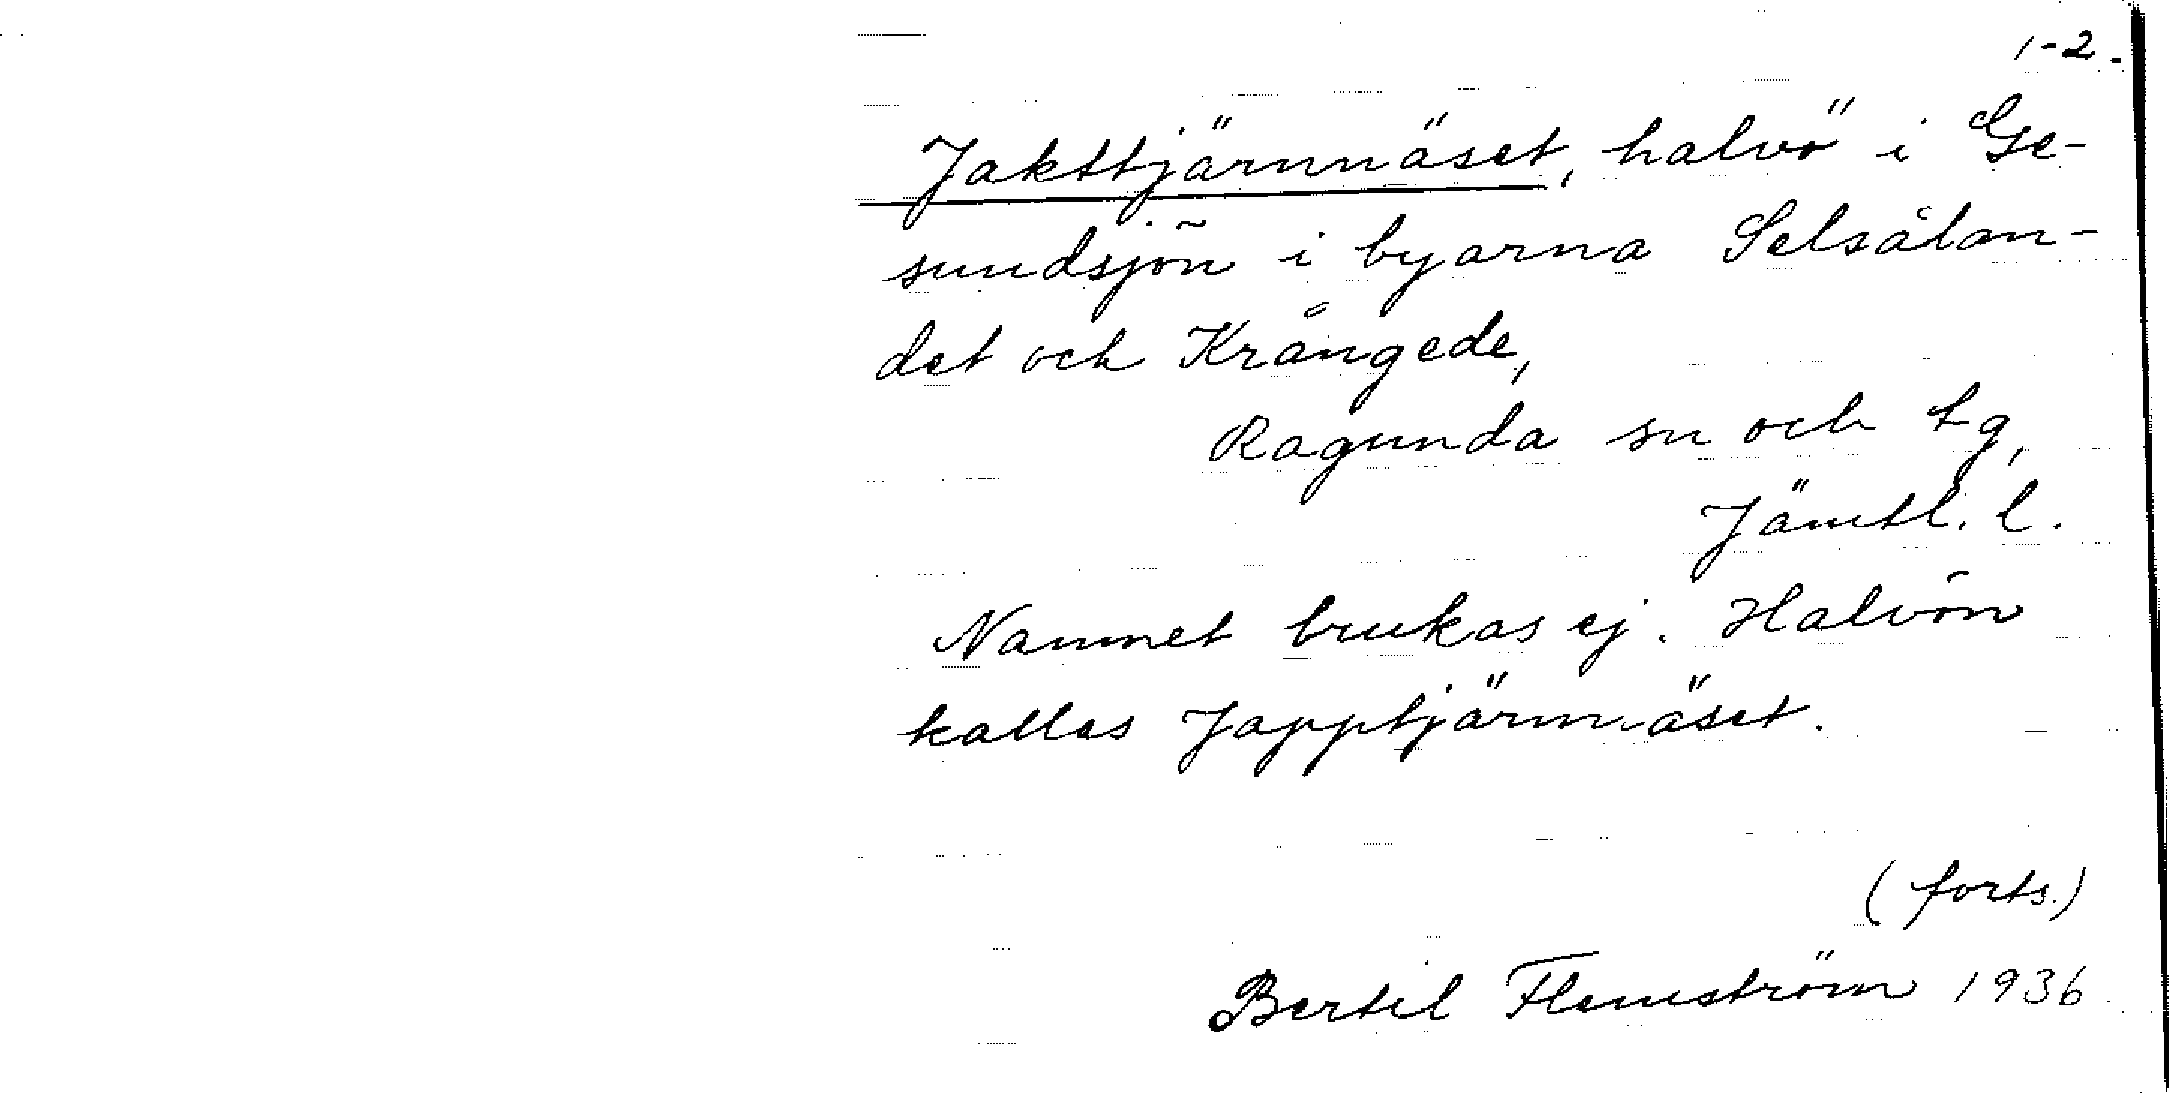 1-2.
Jakttjärnnäset, halvö i Ge-
sundsjön i byarna Selsålan-
det och Krångede,
Ragunda sn och tg,
Jämtl. l.
Namnet brukas ej. Halvön
kallas Japptjärnnäset.
(forts.)
Bertil Flemström 1936